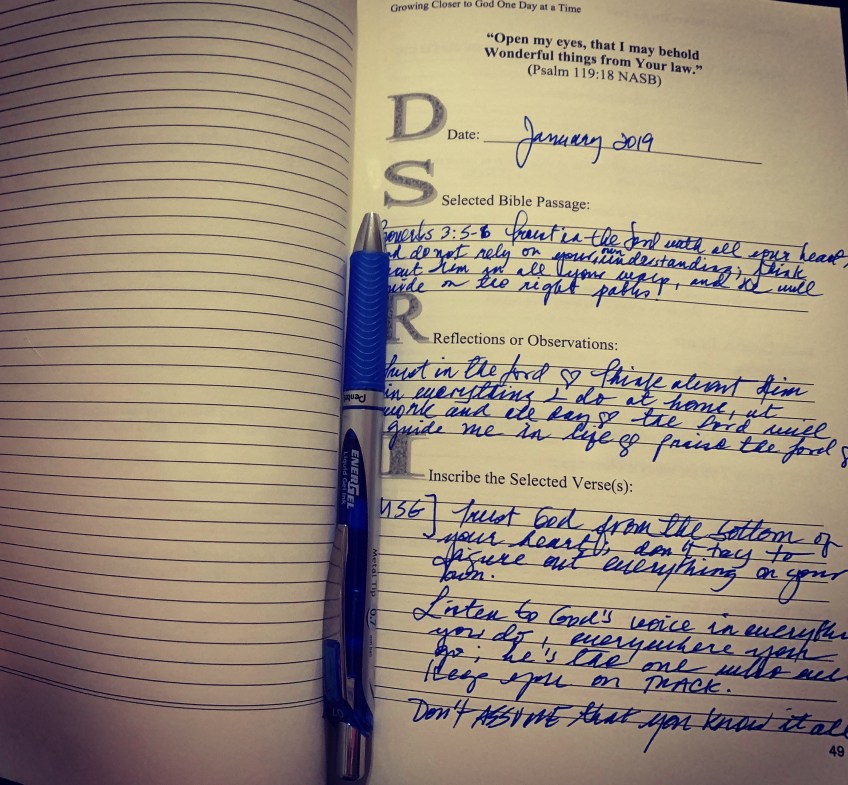 Growing Closer to God One Day at a Time
“Open my eyes, that I may behold
Wonderful things from Your law.”
(Psalm 119:18 NASB)
D
Date: January 2019
S
Selected Bible Passage:
overbs 3:5-6 Trust in the Lord with all your heart,
nd do not rely on your own understanding; think
out Him in all your ways, and He will
uide on the right paths!
R
Reflections or Observations:
Trust in the Lord ♡ Think about Him
in everything I do at home, at
work and all day ♡ the Lord will
guide me in life & praise the Lord
I
Inscribe the Selected Verse(s):
MSG] Trust God from the bottom of
your heart; don't try to
figure out everything on your
own.
Listen to God's voice in everythi
you do, everywhere you
go; he's the one who
keep you on TRACK.
Don't ASSUME that you know it all
49
Pentel
ENERGEL
Liquid Gel Ink
Metal Tip 0.7